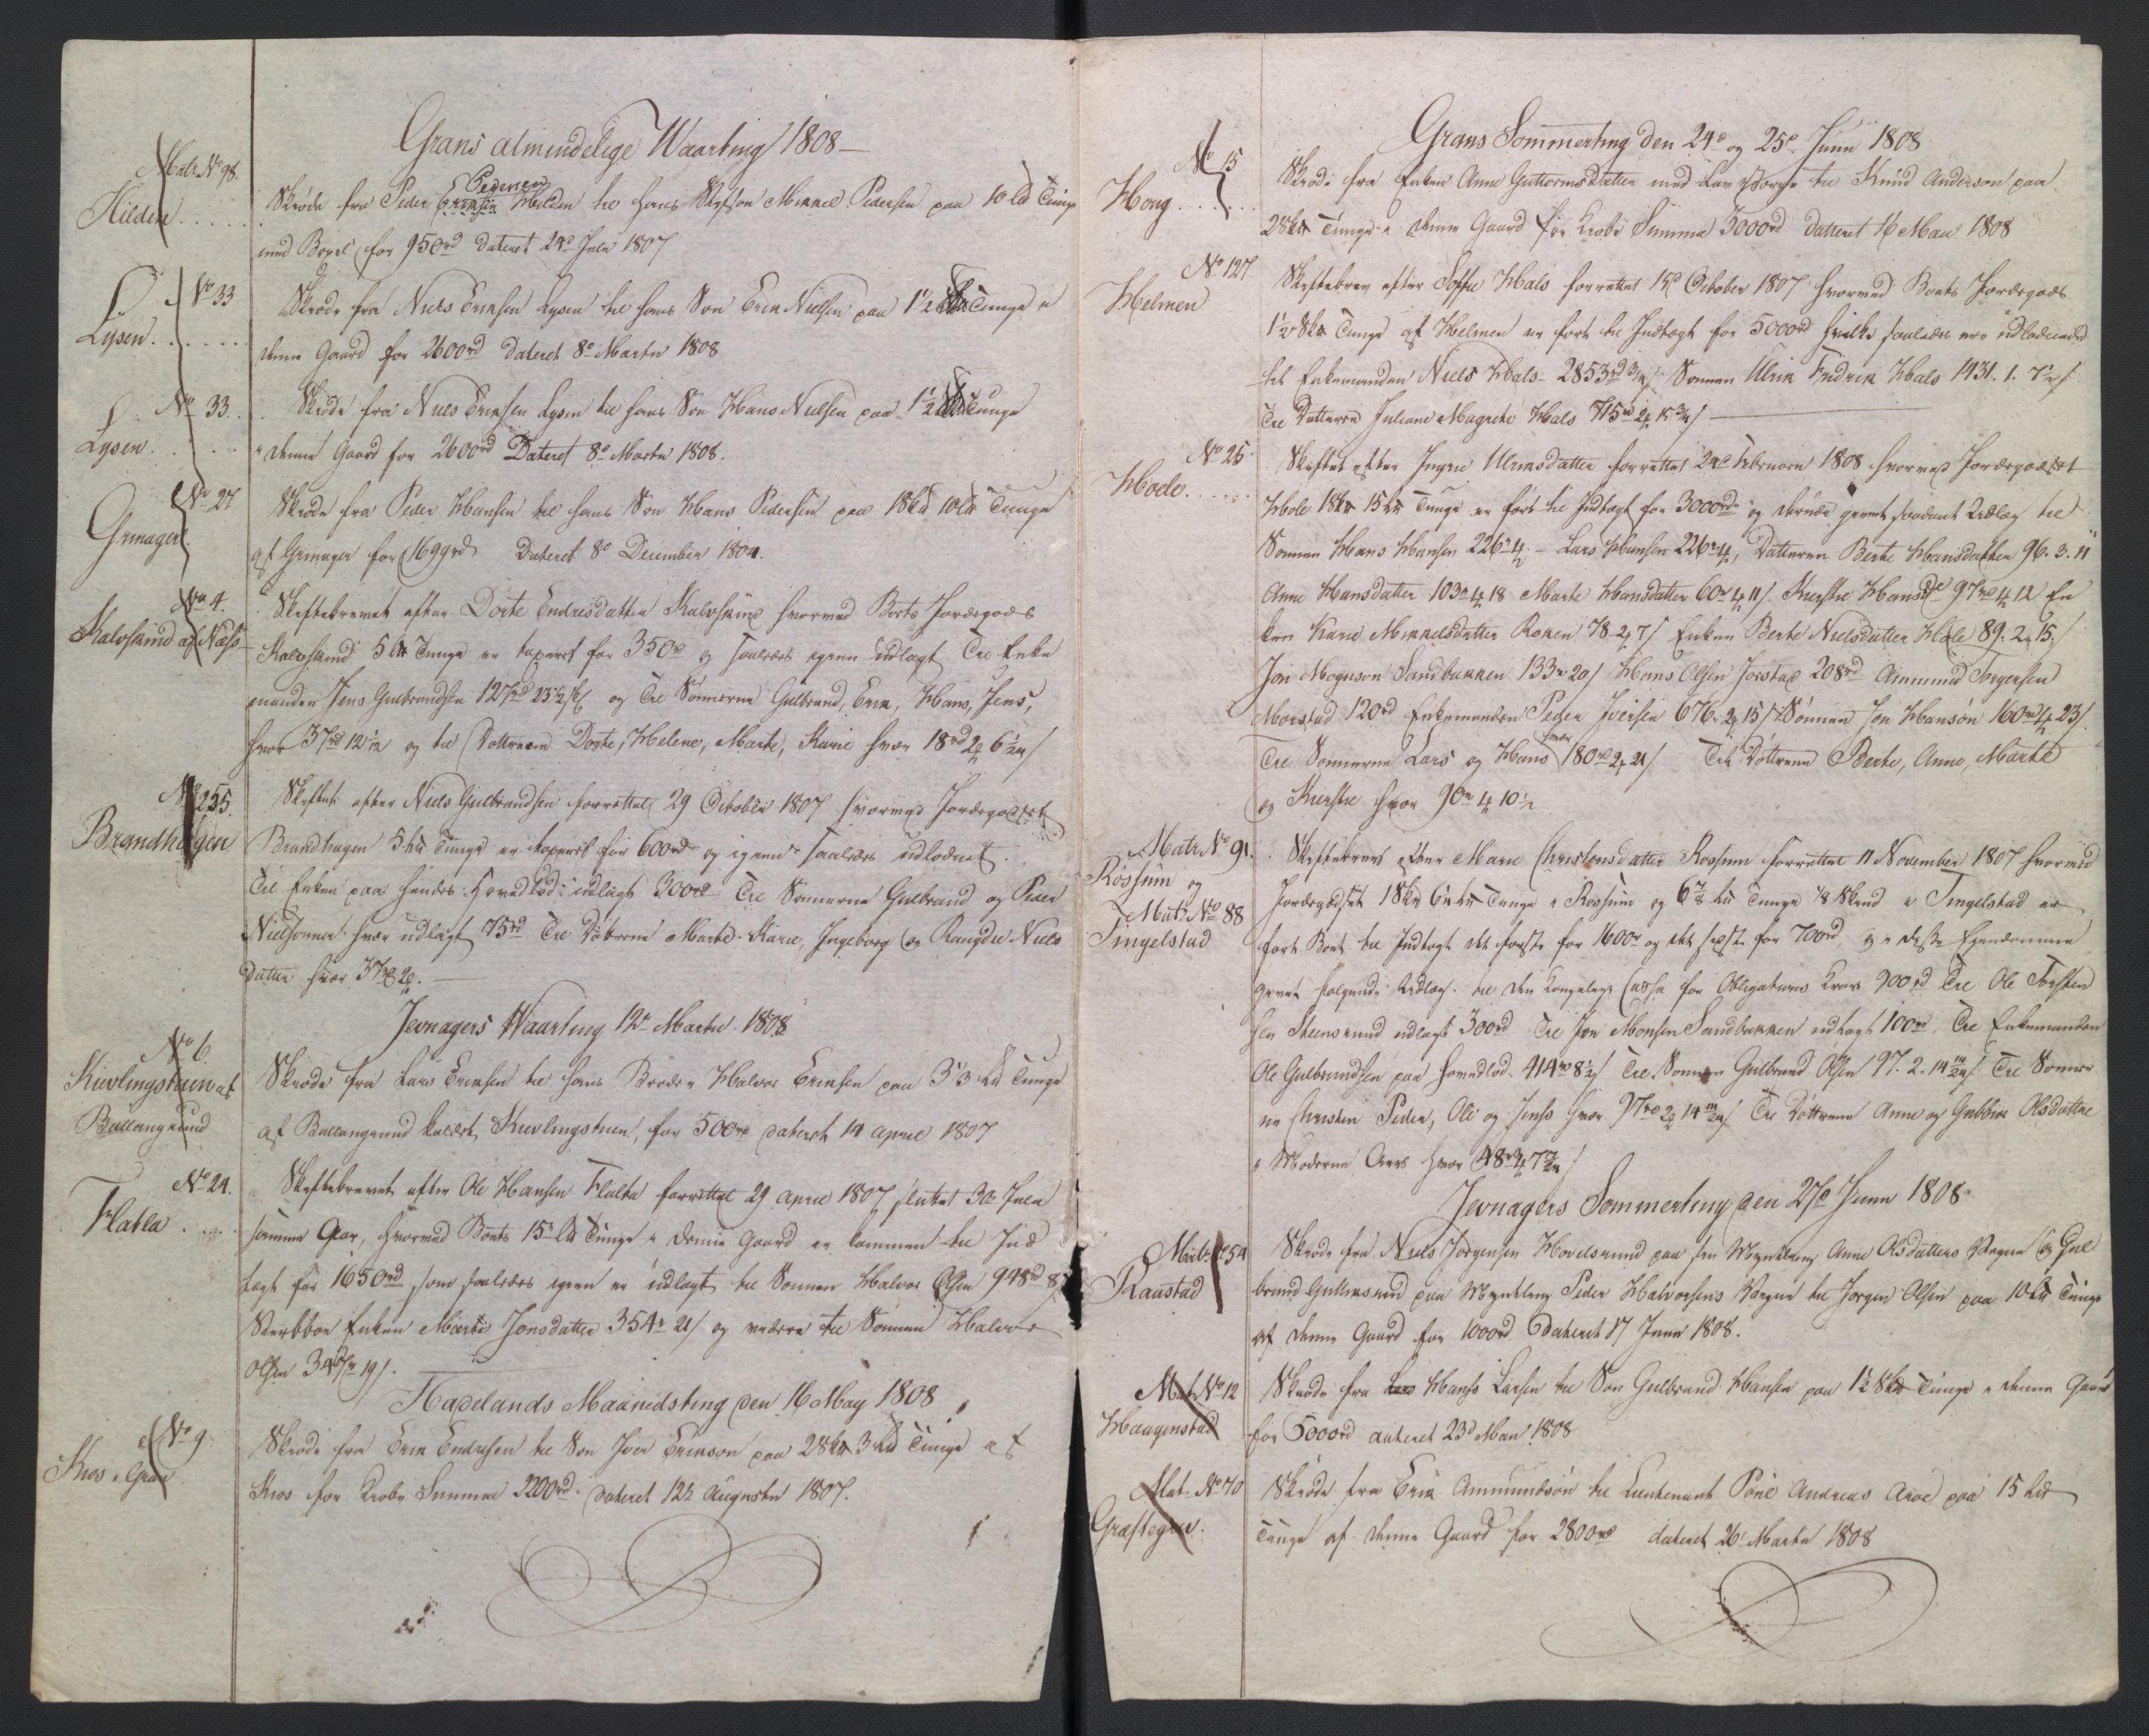 Grans almindelige Waarting 1808
Matr. No 98.
Hilden
Skiøde fra Peder Erichsen Pedersen Hilden til hans Søn Michel Pedersen paa 10 L℔ Tunge
med Bøxel for 950rd dateret 24d Julii 1807
No 33
Lysen
Skiøde fra Niels Erichsen Lysen til hans Søn Erich Nielsen paa 1 1/2 Tunge i
denne Gaard for 2600rd dateret 8d Martii 1808
No 33
Lysen
Skiøde fra Niels Erichsen Lysen til hans Søn Hans Nielsen paa 1 1/2 Tunge
i denne Gaard for 2600rd Dateret 8d Martii 1808.
No 27
Grinager
Skiøde fra Peder Hansen til hans Søn Hans Pedersen paa 1 Sk℔ 10 L℔ Tunge
af Grinager for 1699rd Dateret 8d December 1804.
No 4.
Kalvskind af Næss
Skiftebrevet efter Dorte Endrisdatter Kalvskind hvorved Boets Jordegods
Kalvskind 5 L℔ Tunge er taxeret for 350rd og saaledes igien udlagt Til Enke
manden Jens Gulbrandsen 127rd 23 1/2 s og Til Sønnerne Gulbrand, Erich, Hans, Jens,
hver 37rd 12 1/2 og til Døttrene Dorte, Helene, Marte, Karie hver 18rd 2 6 1/4 s
No 255.
Brandhagen
Skiftet efter Niels Gulbrandsen forrettet 29 October 1807 hvorved Jordegodset
Brandhagen 5 L℔ Tunge er taxeret for 600rd og igien saaledes udloddet
Til Enken paa hendes Hovedlod udlagt 300rd Til Sønnerne Gulbrand og Peder
Nielsønner hver udlagt 75rd Til Døttrene Marte, Karie, Ingeborg og Rangdie Niels
datter hver 37rd 2.
Jevnagers Waarting 12te Martii 1808
No 6.
Kievlingstuen af
Ballangrund
Skiøde fra Lars Erichsen til hans Broder Halvor Erichsen paa 3 1/3 L℔ Tunge
af Ballangrund kaldet Kievlingstuen, for 500rd dateret 14 April 1807
No 24.
Flatla
Skiftebrevet efter Ole Hansen Flatla forrettet 29 April 1807 sluttet 30 Julii
samme Aar, hvorved Boets 15 L℔ Tunge i denne Gaard er kommen til Ind
tægt for 1650rd som saaledes igien er udlagt til Sønnen Halvor Olsen 948rd 8 s
Sterbboe Enken Marte Jonsdatter 354rd 21 s og videre til Sønnen Halvor
Olsen 346rd 19 s.
Hadelands Maanedsting den 16 May 1808
No 9
Kios i Gran
Skiøde fra Erich Endresen til Søn Iver Erichsen paa 2 Sk℔ 3 L℔ Tunge af
Kios for Kiøbe Summa 2200rd dateret 12te Augusti 1807.
Grans Sommerting den 24de og 25de Junii 1808
No 15
Houg
Skiøde fra Enken Anne Guttormsdatter med Lav Værge til Knud Anderson paa
2 Sk℔ Tunge i denne Gaard for Kiøbe Summa 3000rd datteret 16 Maii 1808
No 127
Helmen
Skiftebrev efter Sophie Hals forrettet 15d October 1807 hvorved Boets Jordegods
1 1/2 Sk℔ Tunge af Helmen er ført til Indtægt for 5000rd hvilke saaledes ere udloddede
til Enkemanden Niels Hals 2853rd Sønnen Ulrich Fredrich Hals 1431. 1. 7 1/2 s
Til Datteren Juliane Magrete Hals 715rd 2 15 3/4 s
No 25
Hole
Skiftet efter Ingrie Ulrichsdatter forrettet 24d Februari 1808 hvorved Jordegodset
Hole 1 Sk℔ 15 L℔ Tunge er ført til Indtægt for 3000rd og derudi giort saadant Udlæg til
Sønnen Hans Hansen 226rd 4 Lars Hansen 226rd 4, Datteren Berte Hansdatter 96. 3. 11
Anne Hansdatter 103rd 4 18 Marte Hansdatter 60rd 4 11 s Kirstie Hansdr 97rd 4 12 En
ken Karie Michelsdatter Roken 78 2 7 s Enken Berte Nielsdatter Hole 89. 2. 15.
Jon Mognson Sandbakken 133rd 20 s Hans Olsen Jorstad 208rd Ammund Torgersen
Morstad 120rd Enkemanden Peder Iversen 676. 2 15 s Sønnen Jon Hansøn 160rd 4 23 s
Til Sønnerne Lars og Hans hver 180rd 2 21 s Til Døttrene Berte, Anne, Marte
og Kirstie hver 90rd 4 10 1/2
Matr No 91.
Rossum og
Matr No 88
Tingelstad
Skiftebrevet efter Marie Christensdatter Rossum forrettet 11 November 1807 hvorved
Jordegodset 1 Sk℔ 6 L℔ Tunge i Rossum og 6 L℔ Tunge Skind i Tingelstad er
ført Boet til Indtægt det første for 1600rd og det sidste for 700rd og i disse Eiendomme
giort følgende Udlæg. til den Kongelige Cassa for Obligations Krav 900rd Til Ole Torsten
sen Steensrud udlagt 300rd Til Jon Monsen Sandbakken udlagt 100rd, Til Enkemanden
Ole Gulbrandsen paa Hovedlod 414rd 8 1/2 s Til Sønnen Gulbrand Olsen 97. 2. 14 s Til Sønner
ne Christen Peder, Ole og Jens hver 97rd 2 14 s Til Døttrene Anne og Gubbiør Olsdatter
i Moderne Arv hver 48rd 4 7 s
Jevnagers Sommerting den 27de Junii 1808
Matr No 54
Raastad
Skiøde fra Niels Jørgensen Hovelsrud paa sin Myndling Anne Olsdatters Vegne og Gul
brand Gullersrud paa Myndling Peder Halvorsens Vegne til Jørgen Olsen paa 10 L℔ Tunge
af denne Gaard for 1000rd dateret 17 Junii 1808.
Matr No 12
Haagenstad
Skiøde fra Lars Hans Larsen til Søn Gulbrand Hansen paa 1 1/2 Sk℔ Tunge i denne Gaard
for 5000rd dateret 23d Maii 1808
Mat. No 70
Græftegrev
Skiøde fra Erich Ammundsøn til Lieutenant Andreas paa 15 L℔
Tunge af denne Gaard for 2800rd dateret 26 Martii 1808